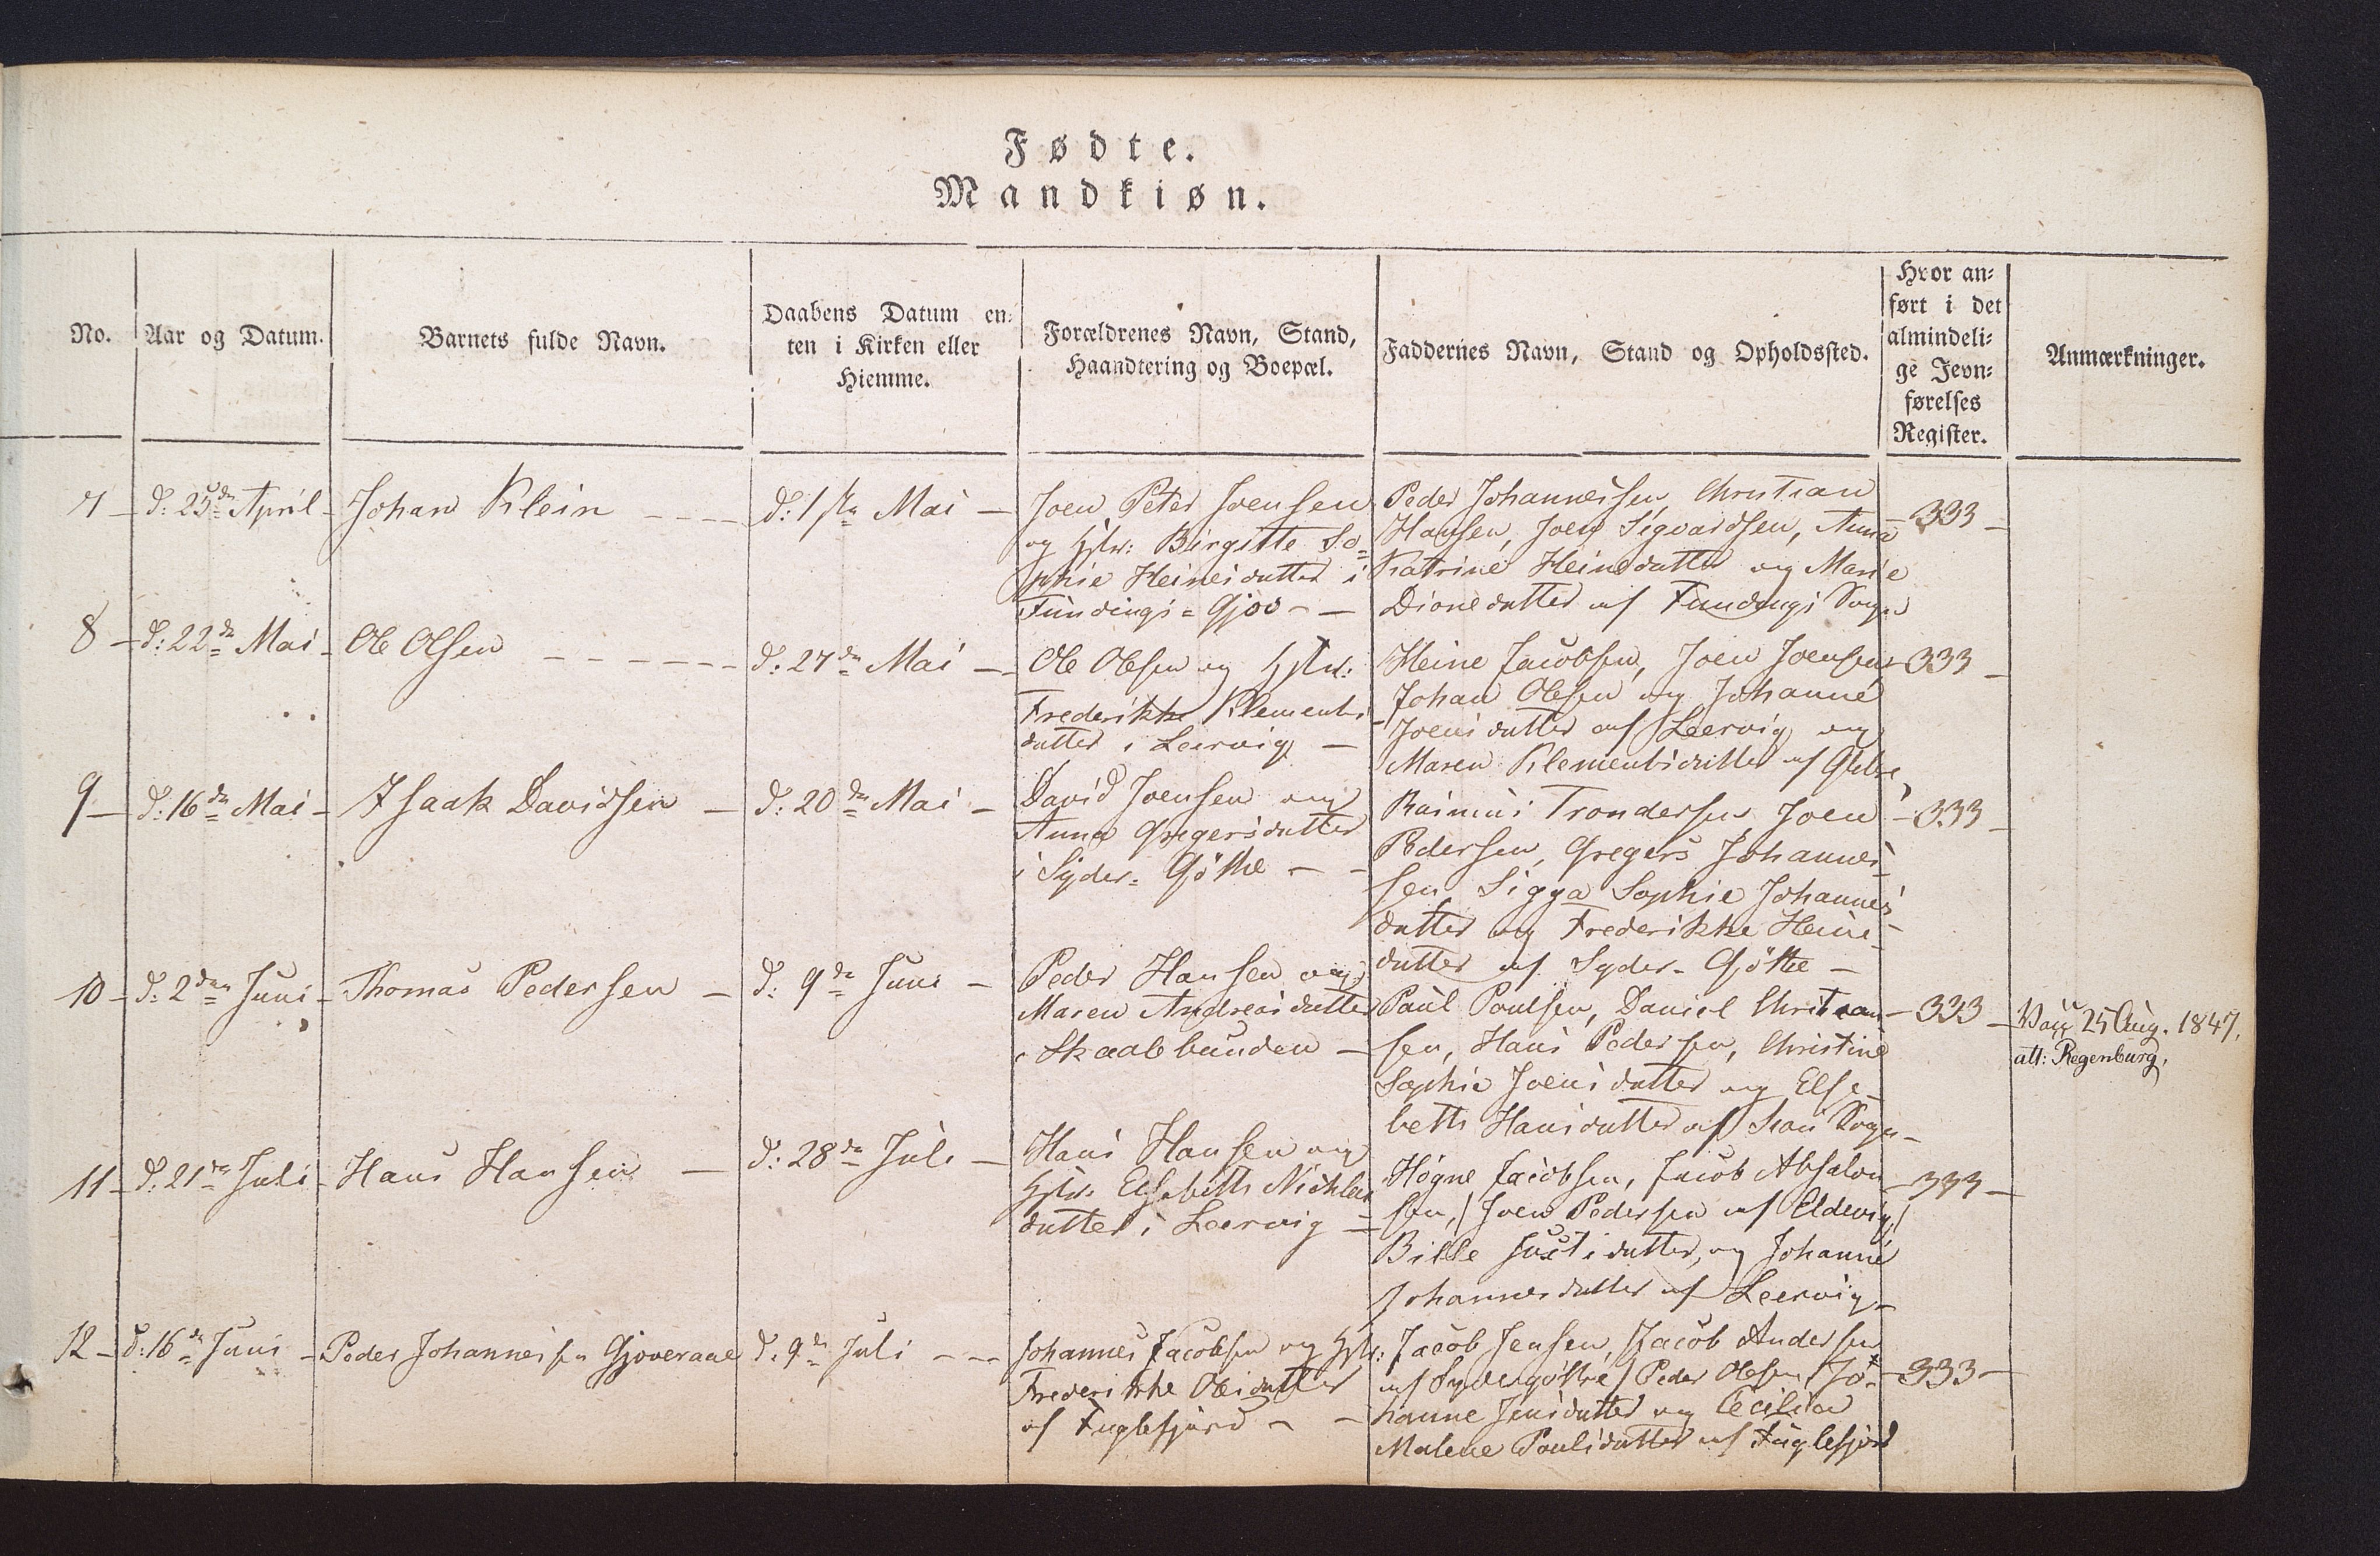 Fødte.
Mandkiøn.
No.
Aar og Datum.
Barnets fulde Navn.
Daabens Datum en-
ten i Kirken eller
Hiemme.
Forældrenes Navn, Stand,
Haandtering og Boepæl.
Faddernes Navn, Stand og Opholdssted.
Hvor an-
ført i det
almindeli-
ge Jevn-
førelses
Register.
Anmærkninger.
7 - d: 25de April - Johan Klein - - - - d: 1ste Mai -
Joen Peter Joensen
og Hstr: Birgitte So=
phie Heinesdatter i
Fundings=Gjov - -
Peder Johannessen, Christian
Hansen, Joen Sigvardsen, Anna
Katrine Heinedatter og Marie
Dionedatter af Fundings Sogn
- 333 -
8 - d: 22de Mai - Ole Olsen - - - - - - d: 27de Mai -
Ole Olesen og Hstr:
Frederikke Klements
datter i Leervig -
Heine Jacobsen, Joen Joensen
Johan Olesen og Johanne
Joensdatter af Leervig og
Maren Klementsdatter af Gøtre,
- 333 -
9 - d: 16de Mai - Isaak Davidsen - d: 20de Mai -
David Joensen og
Anna Gregersdatter
i Syder=Gøthe - -
Rasmus Trondersen Joen
Pedersen, Gregers Johannes-
sen Sigga Sophie Johannes-
datter og Frederikke Heine-
datter af Syder-Gøthe -
- 333 -
10 - d: 2den Juni - Thomas Pedersen - d: 9de Juni -
Peder Hansen og
Maren Andreasdatter
i Skaalebunden -
Paul Poulsen, Daniel Christian-
sen, Hans Pedersen, Christine
Sophie Joensdatter og Else-
beth Hansdatter af Sogn -
- 333 -
Vacc 25 Aug. 1847.
att: Regenburg.
11 - d: 21de Juli - Hans Hansen - d: 28de Juli -
Hans Hansen og
Hstr: Elsebeth Nicklas
datter i Leervig -
Høgne Jacobsen, Jacob Absalon
sen, / Joen Pedersen af Eldevig /
Bille Justsdatter, og Johanne
Johannesdatter af Leervig -
- 333 -
12 - d: 16de Juni - Peder Johannessen Gjoveraae d: 9de Juli - - -
Johannes Jacobsen og Hstr:
Frederikke Olesdatter
af Fuglefjord - -
Jacob Jensen, / Jacob Andersen
af Sydergøthe / Peder Olesen, Jo-
hanne Jensdatter og Cecilia
Malene Poulsdatter af Fuglefjord
- 333 -